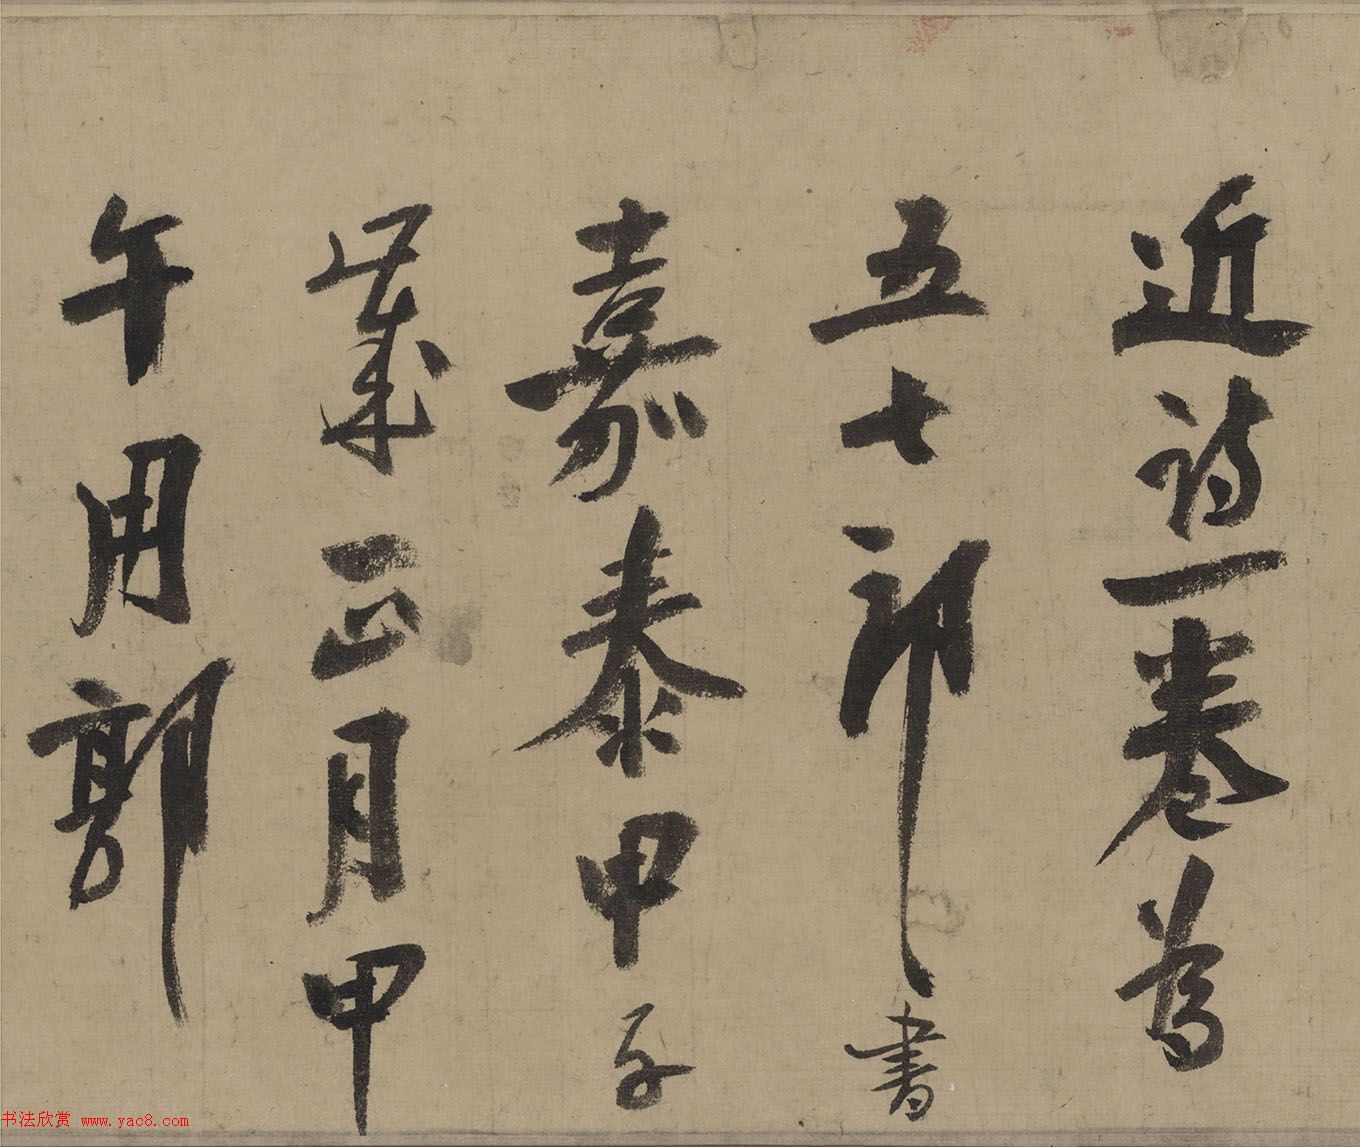 近诗一卷为
五七郎書
嘉泰甲子
歲正月甲
午用郭
书法欣赏 www.yac8.com